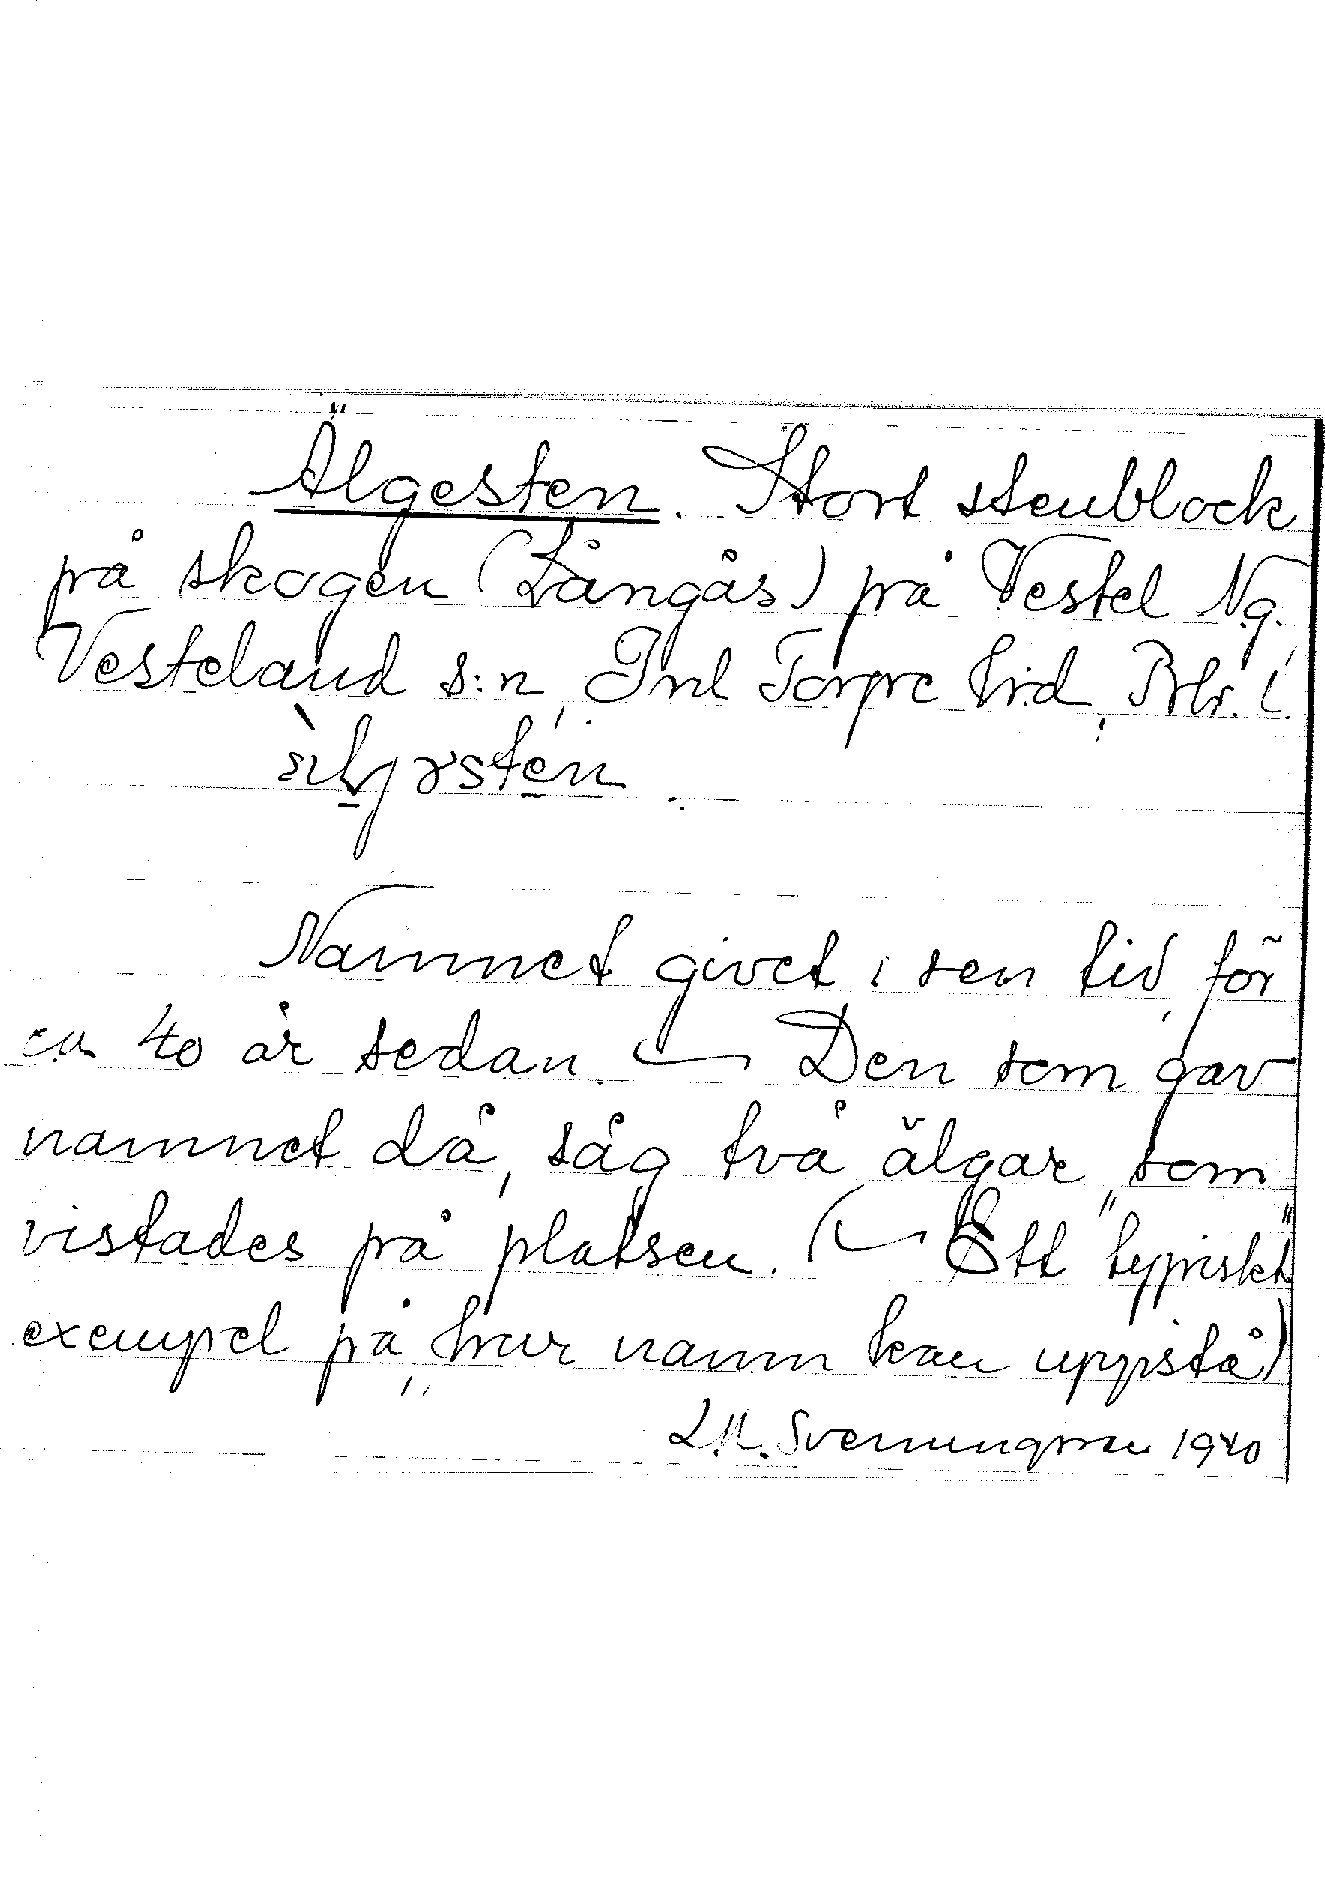 Älgesten. Stort stenblock
på skogen (Långås) på Vestel N.g.
Vesteland s:n, Inl Torpe hrd, Blr. l.
Namnet givet i sen tid, för
ca 40 år sedan. — Den som gav
namnet då, såg två älgar som
vistades på platsen. (— Ett "typiskt"
exempel på, hur namn kan uppstå)
L.M. Svenungsson 1940